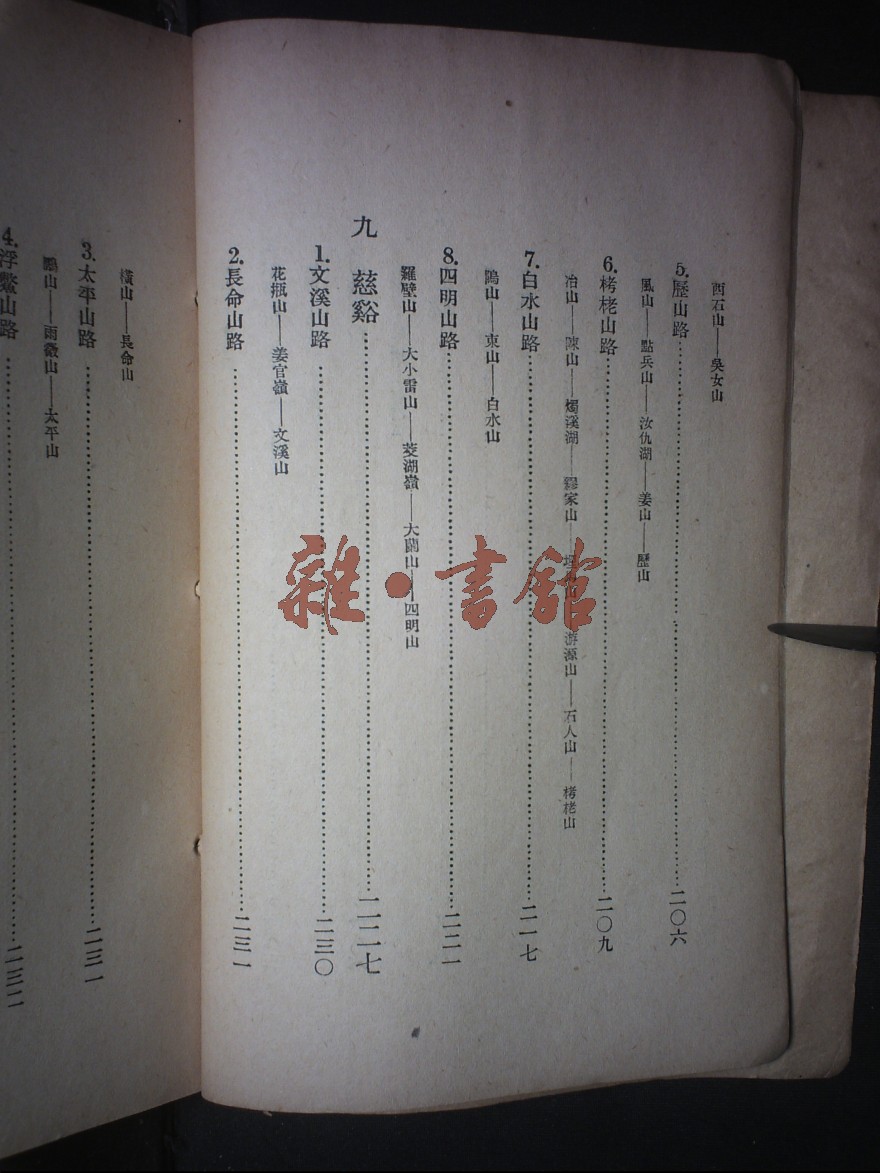 西石山——吳女山
5.歷山路……二〇六
風山——點兵山——汝仇湖——姜山——歷山
6.栲栳山路……二〇九
冶山——陳山——燭溪湖——家山——游源山——石人山——栲栳山
7.白水山路……二一七
隝山——東山——白水山
8.四明山路……二二一
羅壁山——大小雷山——菱湖嶺——大蘭山——四明山
九 慈谿……二二七
1.文溪山路……二三〇
花瓶山——姜官嶺——文溪山
2.長命山路……二三一
橫山——長命山
3.太平山路……二三一
鵬山——雨山——太平山
4.浮鰲山路……二三二
雜·書館